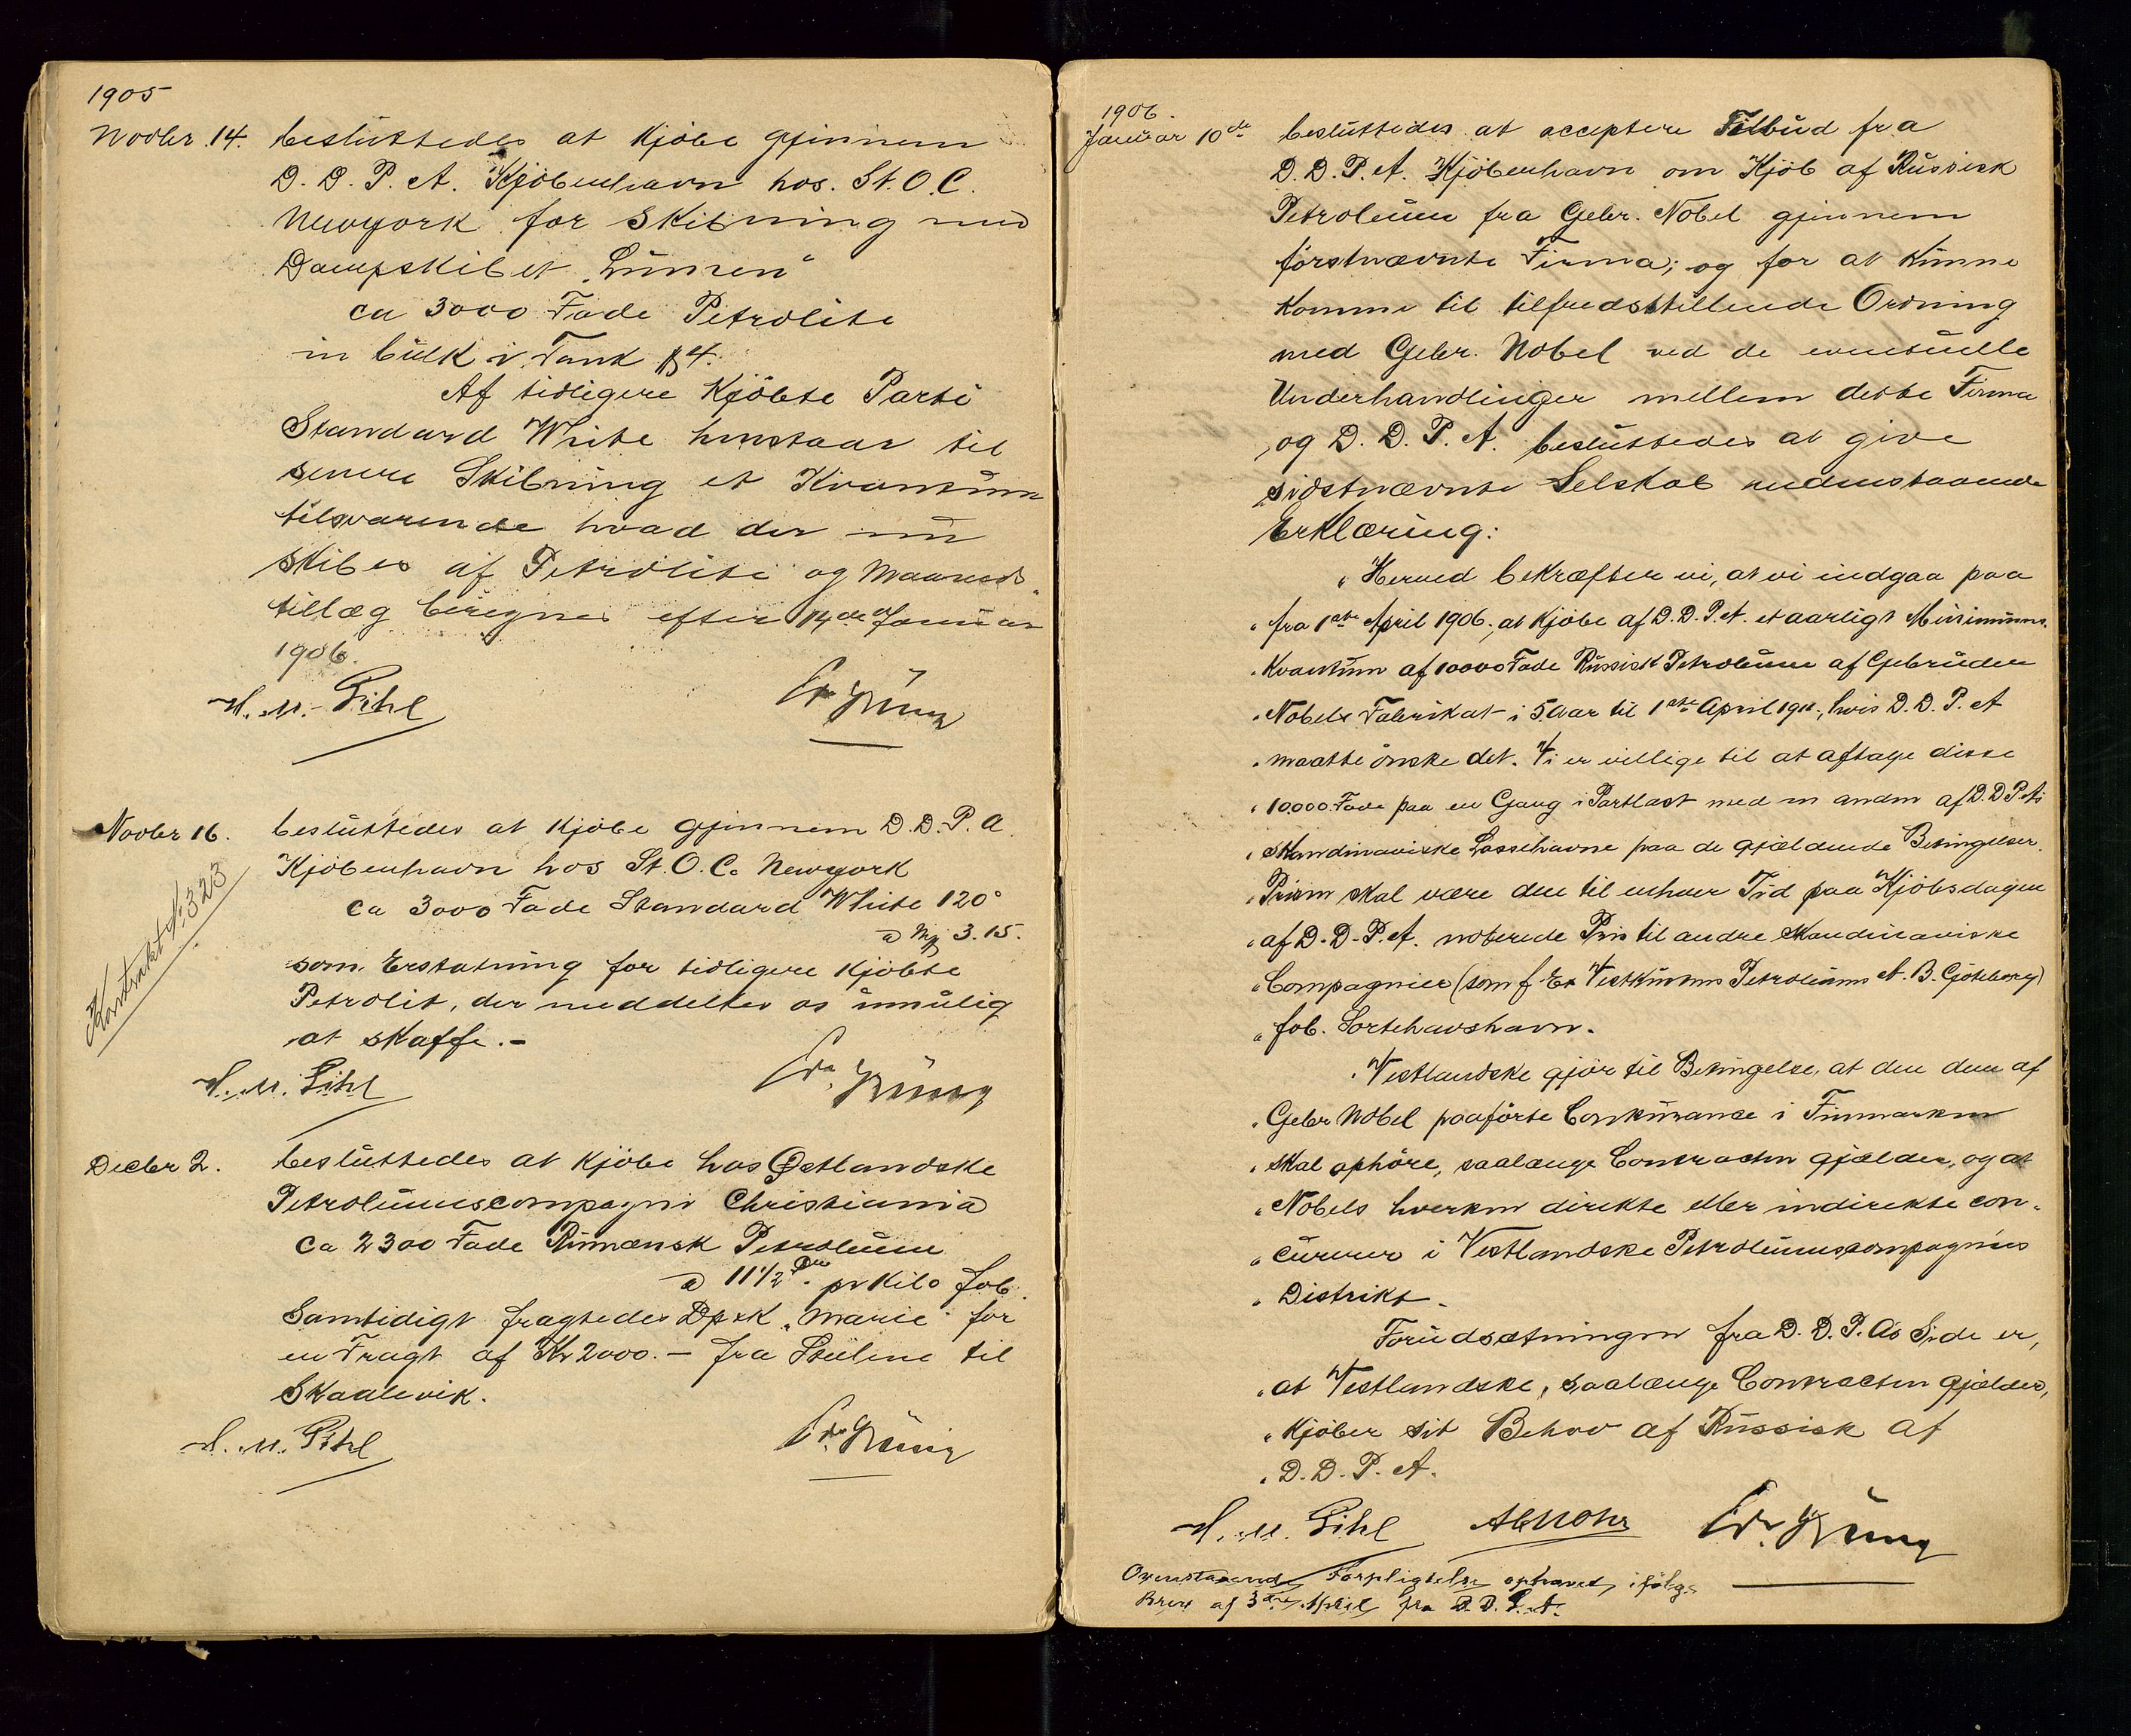 1905
Novbr. 14. besluttedes at kjöbe gjennem
D. D. P. A. Kjöbenhavn hos. St. O. C.
Newyork for Skibning med
Dampskibet „Lumen"
ca 3000 Fade Petrolite
in bulk i Tank № 4.
Af tidligere Kjöbte Parti
Standard White henstaar til
senere Skibning et Kvantum
tilsvarende hvad der nu
skibes af Petrolite og Maaneds-
tillæg beregnes efter 14de Januar
1906.
H. M. Pihl
Novbr 16. besluttedes at kjöbe gjennem D. D. P. A.
Kjöbenhavn hos St. O. C. Newyork
ca 3000 Fade Standard White 120°
a 3.15.
som Erstatning for tidligere kjöbte
Petrolit, der meddeltes os umulig
at skaffe.-
Kontrakt № 323
H. M. Pihl
Decbr 2. besluttedes at kjöbe hos Östlandske
Petroleumscompagni Christiania
ca 2300 Fade Rumænsk Petroleum
a 11 1/2 Øre pr Kilo fob.
Samtidigt fragtedes Dpsk „Marie" for
en Fragt af Kr 2000.- fra Steilene til
Skaalevik.
H. M. Pihl
1906.
Januar 10de besluttedes at acceptere Tilbud fra
D. D. P. A. Kjöbenhavn om Kjöb af Russisk
Petroleum fra Gebr. Nobel gjennem
förstnævnte Firma; og for at kunne
komme til tilfredsstillende Ordning
med Gebr. Nobel ved de eventuelle
Underhandlinger mellem dette Firma
og D. D. P. A. besluttedes at give
sidstnævnte Selskab nedenstaaende
Erklæring:
„Herved bekræfter vi, at vi indgaa paa
„fra 1ste April 1906, at kjöbe af D. D. P. A. et aarligt Minimums-
„Kvantum af 10000 Fade Russisk Petroleum af Gebrüder
„Nobels Fabrikat i 5 Aar til 1ste April 1911, hvis D. D. P. A
„maatte önske det. Vi er villige til at aftage disse
„10.000 Fade paa en Gang i Partlast med en anden af D. D. P. A's
„skandinaviske Lossehavne paa de gjældende Betingelser.
„Prisen skal være den til enhver Tid paa Kjöbsdagen
„af D. D. P. A. noterede Pris til andre skandinaviske
„Compagnier (som f. Ex Vestkustens Petroleums A. B. Gjöteborg)
„fob. Sortehavshavn.
„Vestlandske gjör til Betingelse, at den dem af
„Gebr Nobel paaförte Conkurance i Finmarken
„skal ophöre, saalænge Contracten gjælder, og at
„Nobels hverken direkte eller indirekte con-
„curerer i Vestlandske Petroleumscompagnies
„Distrikt.
Forudsætningen fra D. D. P. As Side er,
„at Vestlandske, saalænge Contracten gjælder,
„kjöber sit Behov af Russisk af
„D. D. P. A.
H. M. Pihl
Ovenstaaende Forpligtelse ophævet ifölge
Brev af 3die April fra D. D. P. A.